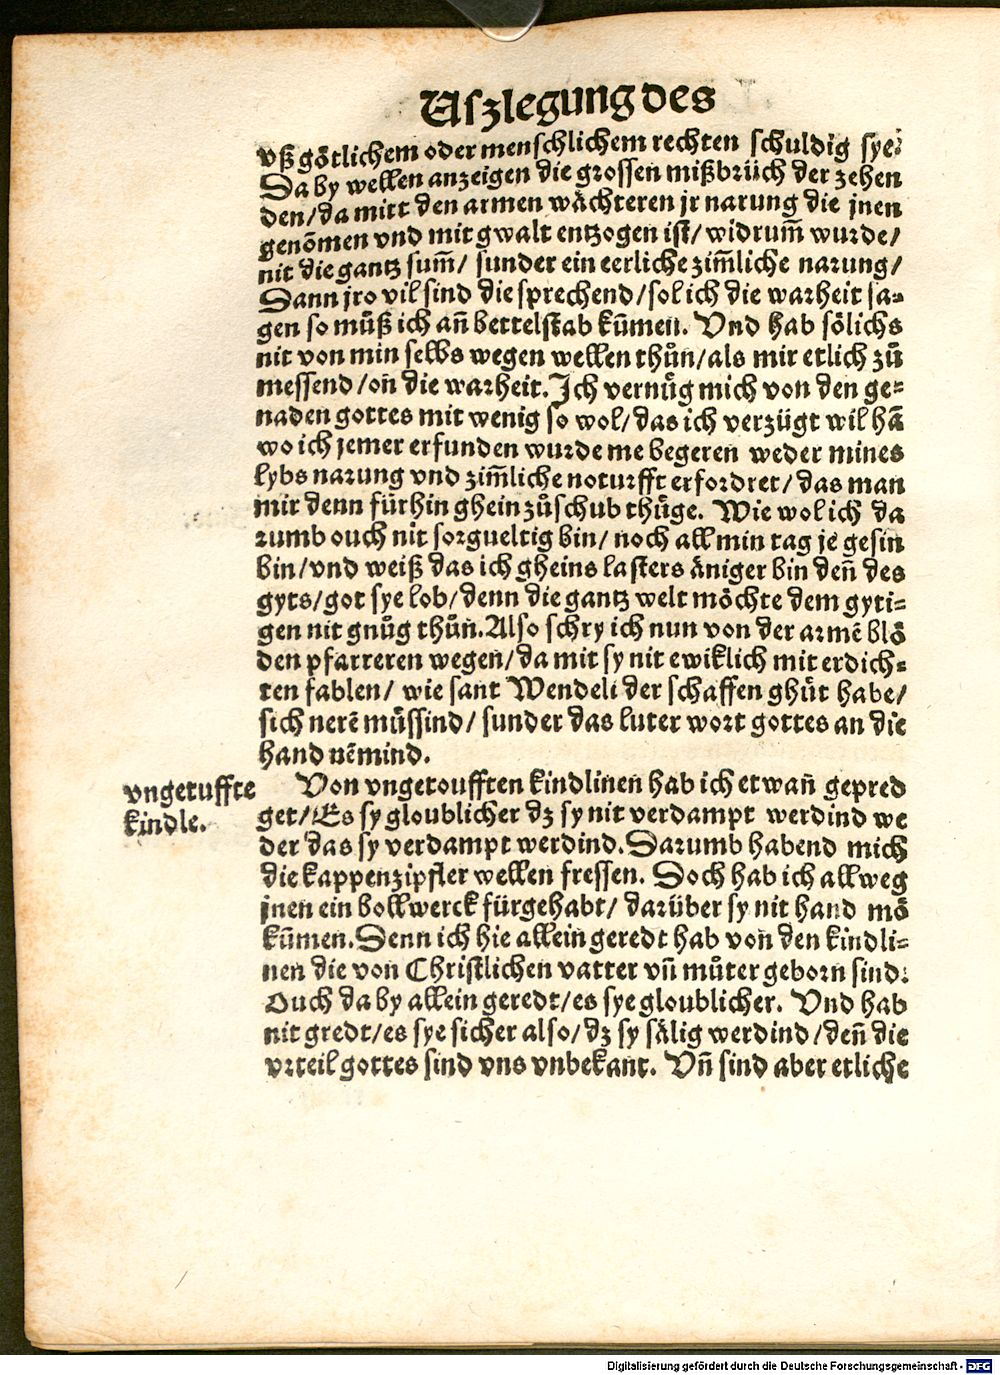 Uſzlegung des
vß götlichem oder menschlichem rechten schuldig sye.
Da by wellen anzeigen die grossen mißbrüch der zehen
den/ da mitt den armen wächteren jr narung die jnen
genom̄en vnd mit gwalt entzogen ist/ widrum̄ wurde/
nit die gantz sum̄/ sunder ein eerliche zim̄liche narung/
Dann jro vil sind die sprechend/ sol ich die warheit sa-
gen so mům̊ß ich an̄ bettelstab kūmen. Vnd hab sölichs
nit von min selbs wegen wellen thůn/ als mir etlich zů
messend/ on̄ die warheit. Ich vernůg mich von den ge-
naden gottes mit wenig so wol/ das ich verzügt wil hā
wo ich jemer erfunden wurde me begeren weder mines
lybs narung vnd zim̄liche noturfft erfordret/ das man
mir denn fürhin ghein zůschub thüge. Wie wol ich da
rumb ouch nit sorgueltig bin/ noch all min tag je gesin
bin/ vnd weiß das ich gheins lasters äniger bin den̄ des
gyts/ got sye lob/ denn die gantz welt möchte dem gyti-
gen nit gnůg thůn. Also schry ich nun von der armē blö
den pfarreren wegen/ da mit sy nit ewiklich mit erdich-
ten fablen/ wie sant Wendeli der schaffen ghüt habe/
sich nerē müssind/ sunder das luter wort gottes an die
hand nēmind.
vngetuffte
kindle.
Von vngetoufften kindlinen hab ich etwan̄ gepred
get/ Es sy gloublicher dz sy nit verdampt werdind we
der das sy verdampt werdind. Darumb habend mich
die kappenzipfler wellen fressen. Doch hab ich allweg
jnen ein bollwerck fürgehabt/ darüber sy nit hand mö
kūmen. Denn ich hie allein geredt hab von den kindli-
nen die von Christlichen vatter vn̄ můter geborn sind.
Ouch da by allein geredt/ es sye gloublicher. Vnd hab
nit gredt/ es sye sicher also/ dz sy sälig werdind/ den̄ die
vrteil gottes sind vns vnbekant. Vn̄ sind aber etliche
Digitalisierung gefördert durch die Deutsche Forschungsgemeinschaft - DFG